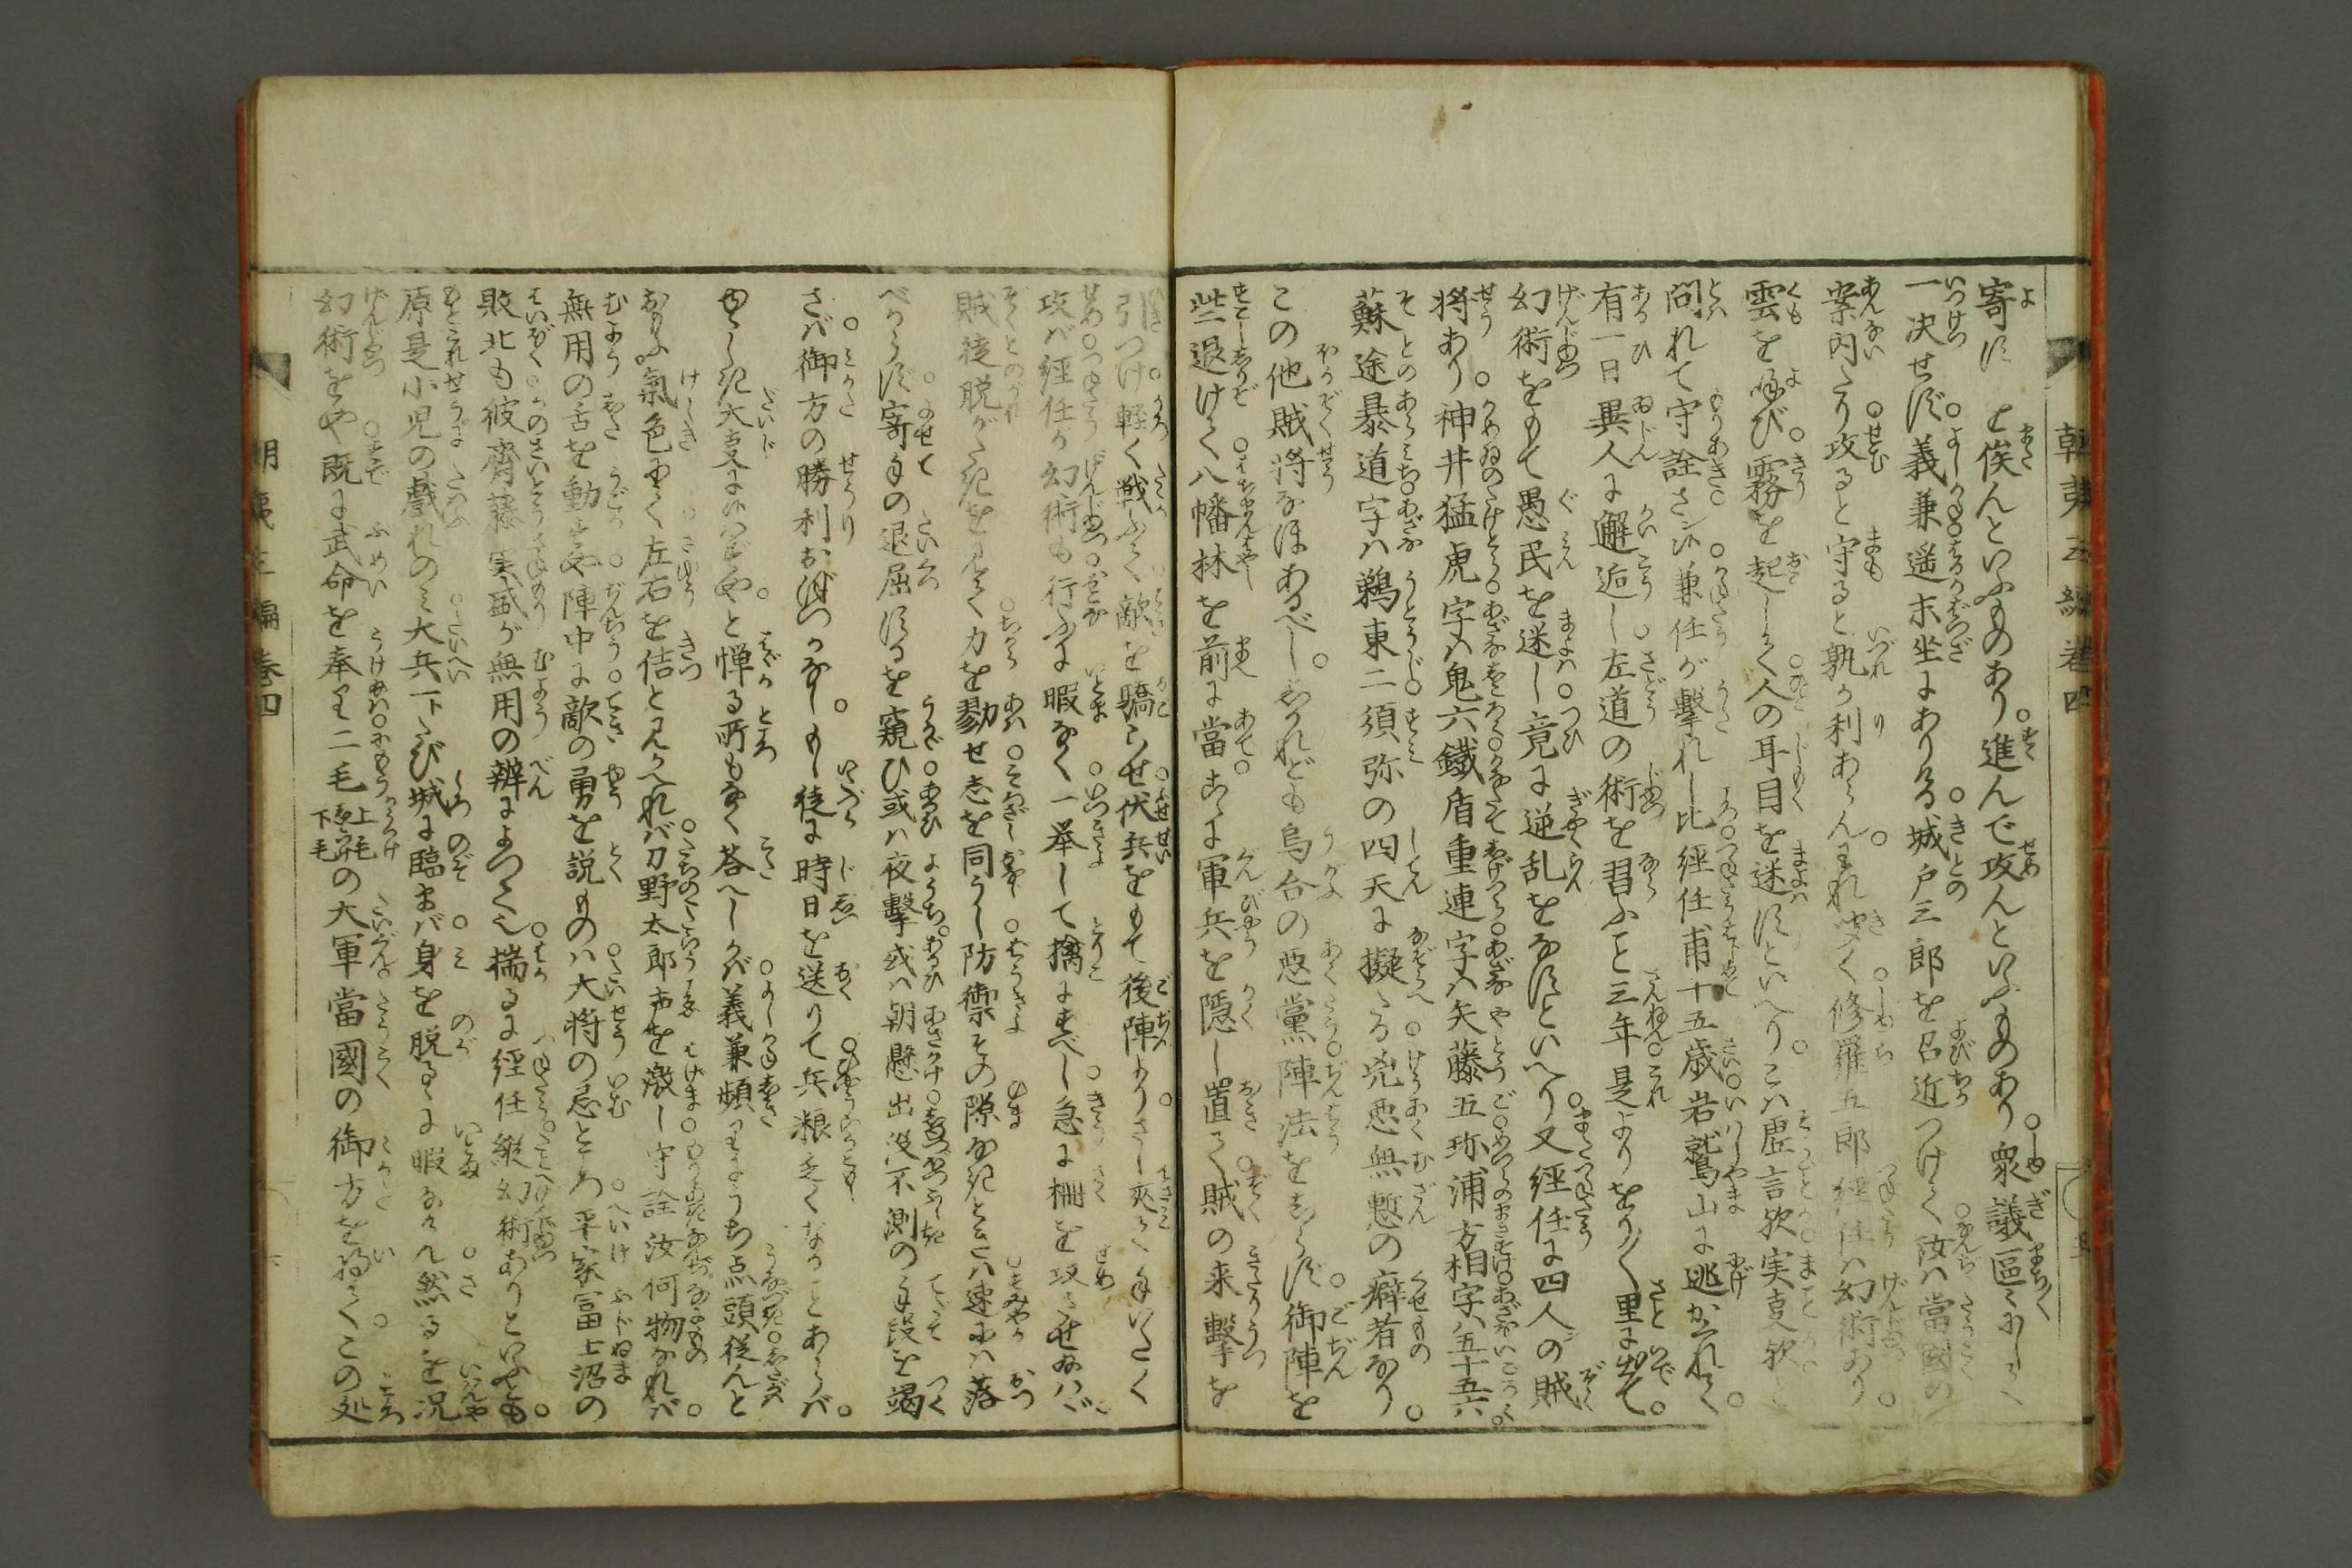 寄ず と俟んといふものあり。進んで攻んといふものあり。衆議區々にして
一决せず。義兼遥末坐にありける。城戸三郎を召近つけて。汝ハ當國の
案内たり。攻ると守ると孰か利あらん。われ聞く修羅五郎經任ハ幻術あり。
雲を呼び。霧を起して。人の耳目を迷すといへり。こハ虚言欤。実事欤と
問れて守詮さン候。兼任が撃れし比。經任甫十五歳。岩鷲山に逃かくれて。
有一日異人に邂逅し。左道の術を習ふこと三年。是よりをり〳〵里に出て。
幻術をもて愚民を迷し。竟に逆乱をなすといへり。又經任に四人の賊
将あり。神井猛虎字ハ鬼六。鐵盾重連字ハ矢藤五。珎浦方相字ハ五十五六。
蘇塗暴道字ハ鵜東二。須弥の四天に擬たる。兇悪無慙の癖者なり。
この他賊将なほあるべし。しかれども烏合の悪黨。陣法をしらず。御陣を
些退けて。八幡林を前に當。こゝに軍兵を隠し置て。賊の来撃を
引つけ。軽く戦ふて敵を驕らせ。伏兵をもて後陣より。さし夾て手いたく
攻バ。經任が幻術も。行ふに暇なく。一挙して擒にすべし。急に柵を攻させ給ハヾ。
賊徒脱がたきをしりて。力を勠せ志を同うし。防禦その隙なきときハ。速にハ落
べからず。寄手の退屈するを窺ひ。或ハ夜撃。或ハ朝懸。出没不測の手段を竭
さバ。御方の勝利おぼつかなし。もし徒に時日を送りて。兵粮乏くなることあらバ。
ゆゝしき大事に候ハずや。と憚る所もなく荅へしかバ。義兼頻にうち点頭。従んと
おもふ氣色にて。左右を佶と見かへれバ。刀野太郎声を激し。守詮汝何物なれバ。
無用の舌を動すや。陣中に敵の勇を説ものハ。大将の忌ところ。平家冨士沼の
敗北も。彼齊藤実盛が無用の辨によつてなり。揣るに経任縦幻術ありといふとも。
原是小児の戯れのみ。大兵一トたび城に臨まバ。身を脱るゝに暇なけん。然るを况
幻術をや。既に武命を奉り。二毛 上毛 下毛 の大軍。當國の御方を得て。この処
朝夷三編卷四